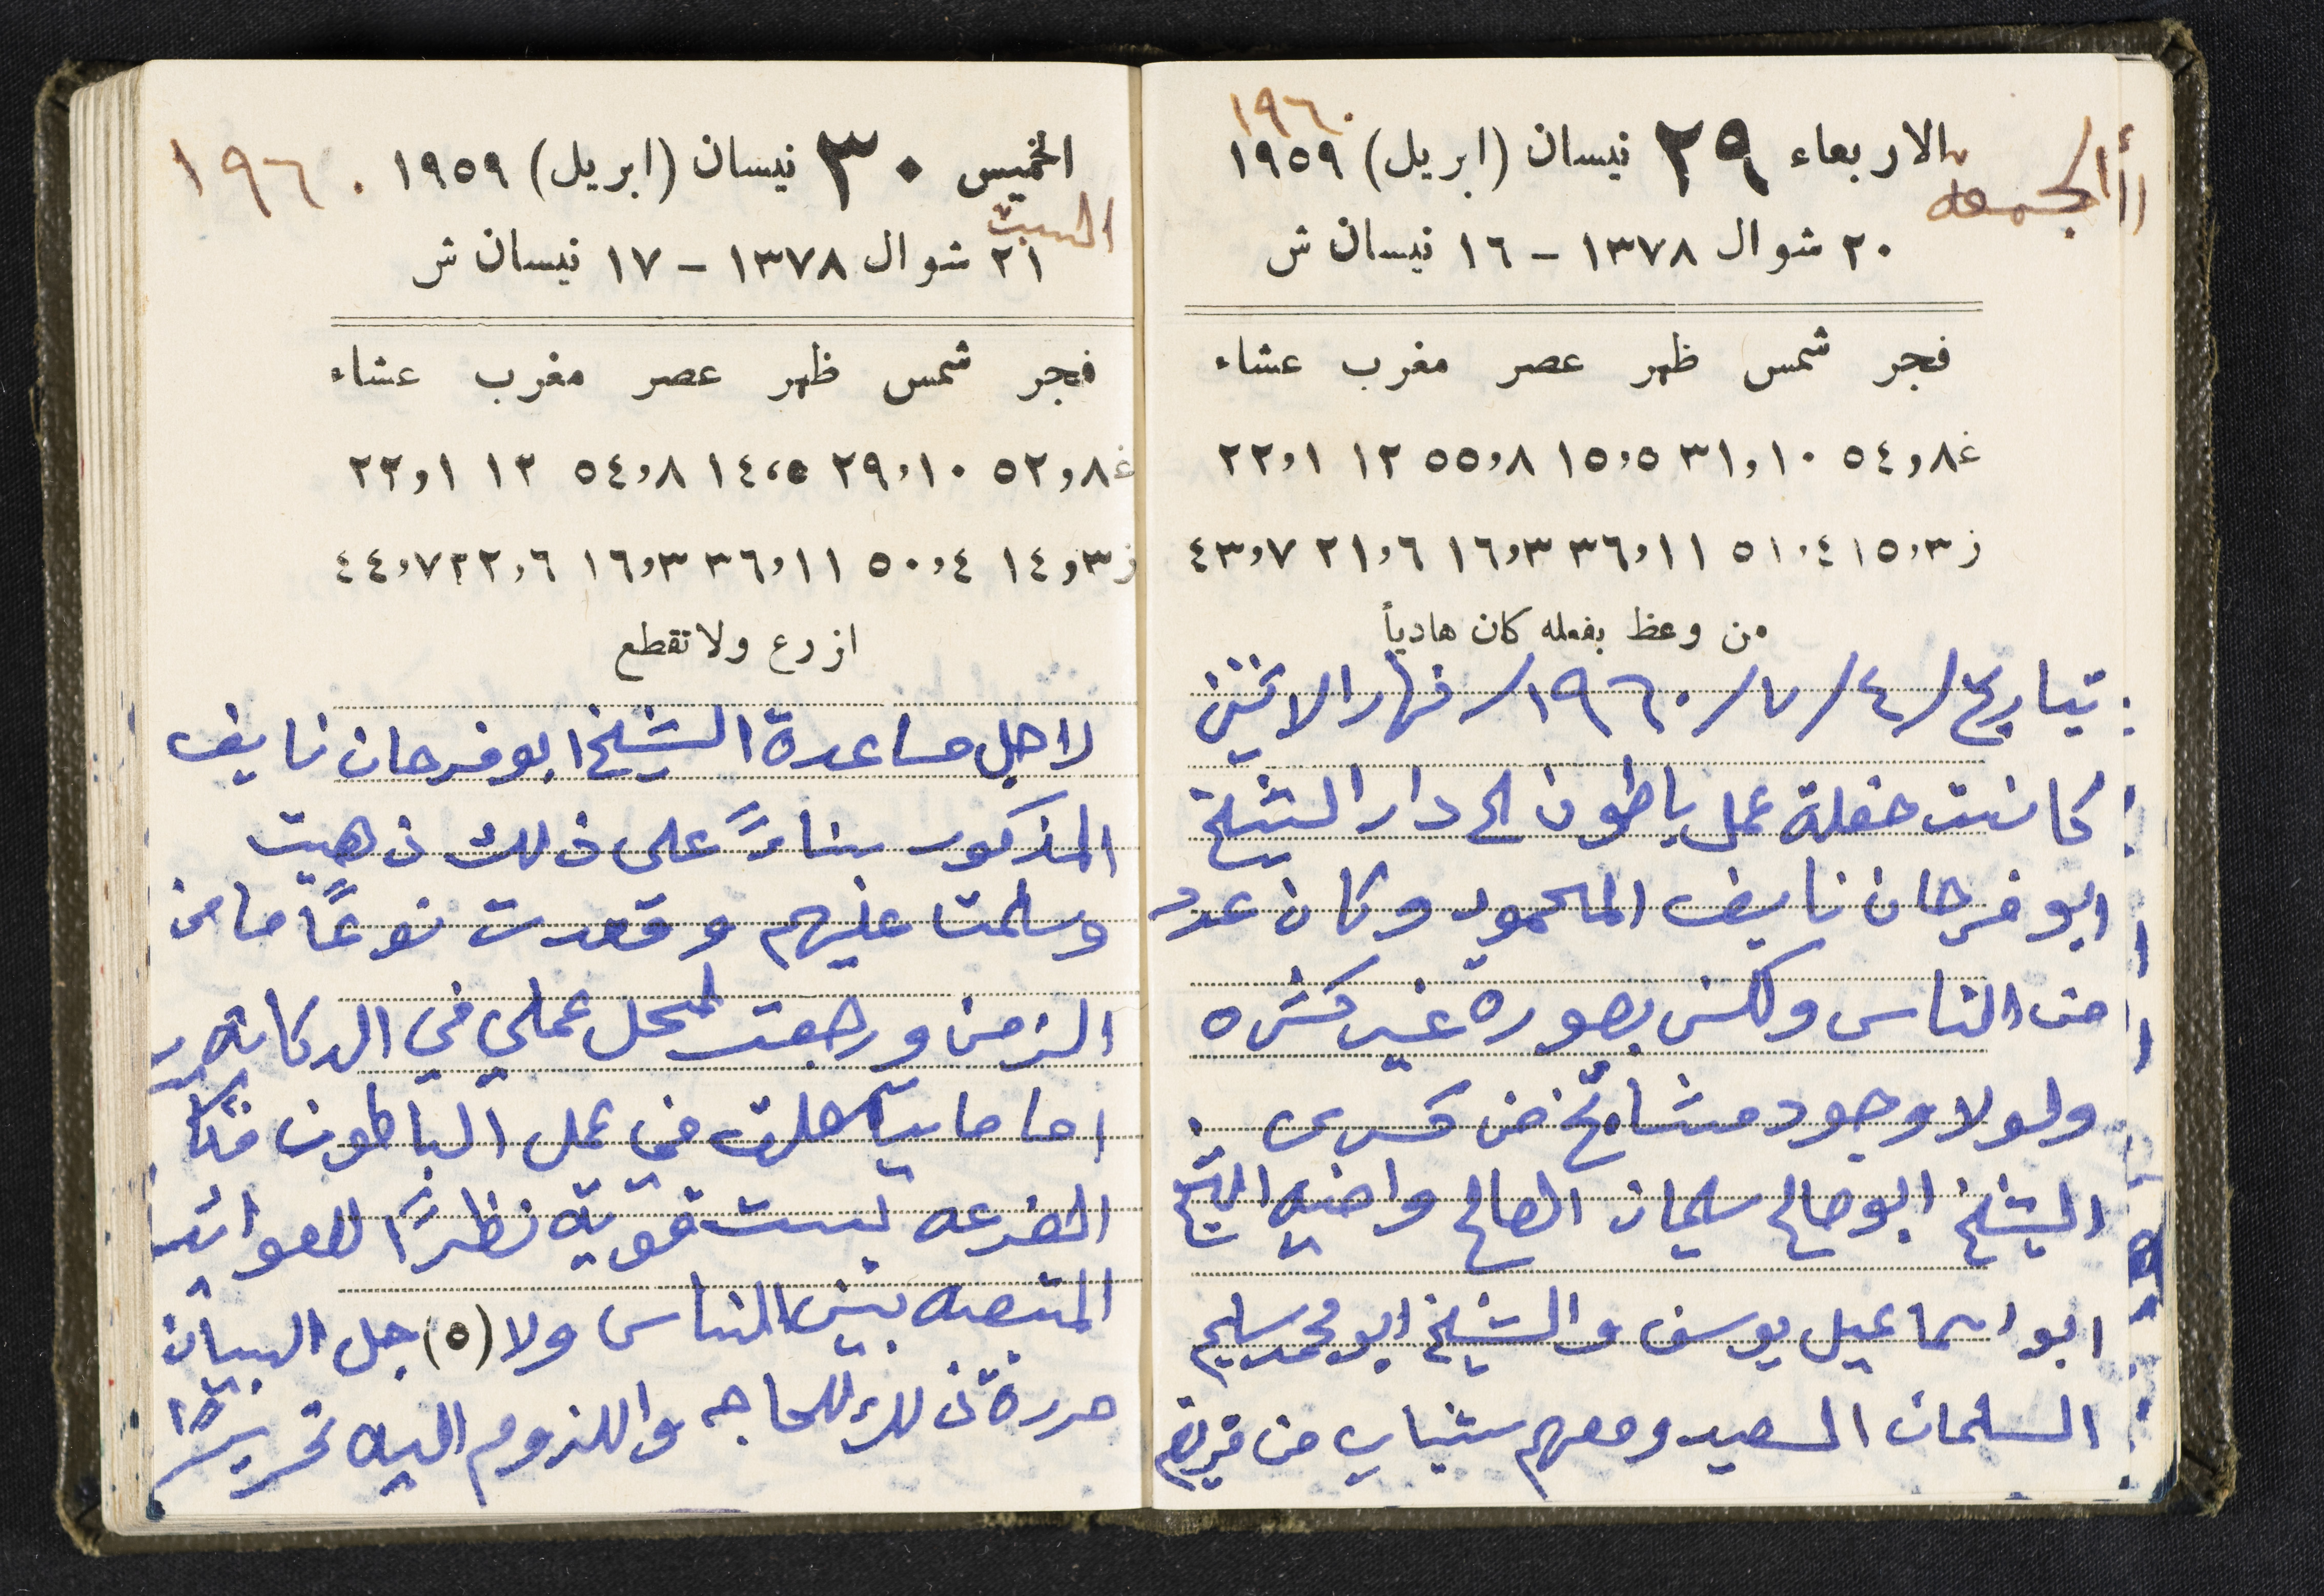 ١٩٦٠
الاربعاء ٢٩ نيسان (ابريل) ١٩٥٩
الجمعه
٢٠ شوال ١٣٧٨ - ١٦ نيسان ش
فجر شمس ظهر عصر مغرب عشاء
غ ٥٤,٨ ٣١,١٠ ١٥,٥ ٥٥,٨ ١٢ ٢٢,١
ز ١٥,٣ ٥١,٤ ٣٦,١١ ١٦,٣ ٢١,٦ ٤٣,٧
من وعظ بفعله كان هادياً
بتاريخ /٤/٧/١٩٦٠/ نهار الاثنين
كانت حفلة عمل باطون الى دار الشيخ
ابو فرحان نايف المحمود وكان عدد
من الناس ولكن بصورة غير كثره
ولولا وجود مشائخ من كسرى
الشيخ ابو صالح سليمان الصالح واخيه الشيخ
ابو اسماعيل يوسف والشيخ ابو محمد سليم
السلمان السعيد ومعهم شباب من قريتهم
الخميس ٣٠ نيسان (ابريل) ١٩٥٩ ١٩٦٠
السبت
٢١ شوال ١٣٧٨ - ١٧ نيسان ش
فجر شمس ظهر عصر مغرب عشاء
غ ٥٢,٨ ٢٩,١٠ ١٤,٥ ٥٤,٨ ١٢ ٢٢,١
ز ١٤,٣ ٥٠,٤ ٣٦,١١ ١٦,٣ ٢٢,٦ ٤٤,٧
ازرع ولا تقطع
لاجل مساعدة الشيخ ابو فرحان نايف
المذكور بناءً على ذلك ذهبت
وسلمت عليهم وقعدت نوعًا ما من
الزمن ورجعت لمحل عملي في الدكانه
اما ما بيآهلت في عمل الباطون
الفزعه ليست قويه نظرًا للعوائد
المتبعه بين الناس ولا (٥) جل البيان
حررة ذلك للحاجه واللزوم اليه تحريرًا